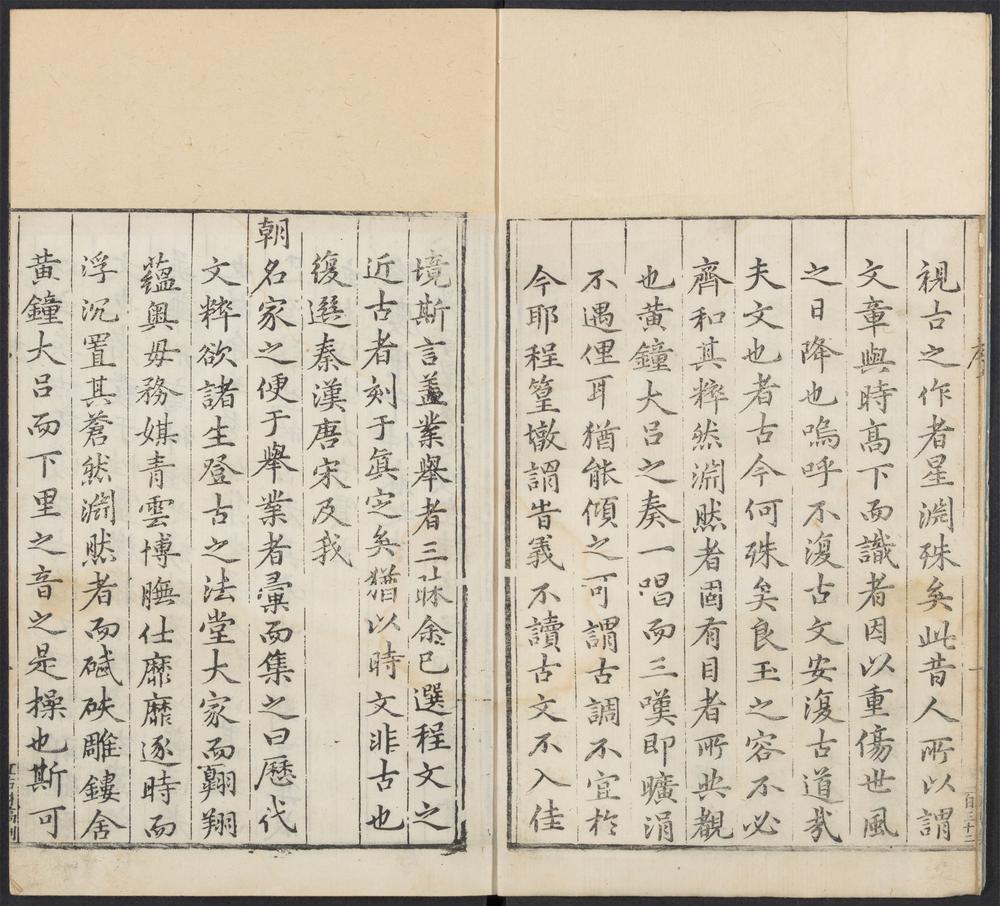 視古之作者星淵殊矣此昔人所以謂
文章與時高下而識者因以重傷世風
之日降也嗚呼不復古文安復古道哉
夫文也者古今何殊矣良玉之容不必
齊和其粹然淵然者固有目者所共覩
也黃鐘大呂之奏一唱而三嘆即曠涓
不遇俚耳猶能傾之可謂古調不宜於
今耶程篁墩謂昔義不讀古文不入佳
境斯言盖業舉者三昧余已選程文之
近古者刻于真定矣猶以時文非古也
復選秦漢唐宋及我
朝名家之便于舉業者彚而集之曰歷代
文粹欲諸生登古之法堂大家而翺翔
蘊奧毋務媒青雲博膴仕靡靡逐時而
浮沉置其蒼然淵然者而碔砆雕鏤舍
黃鐘大呂而下里之音之是操也斯可
序
一